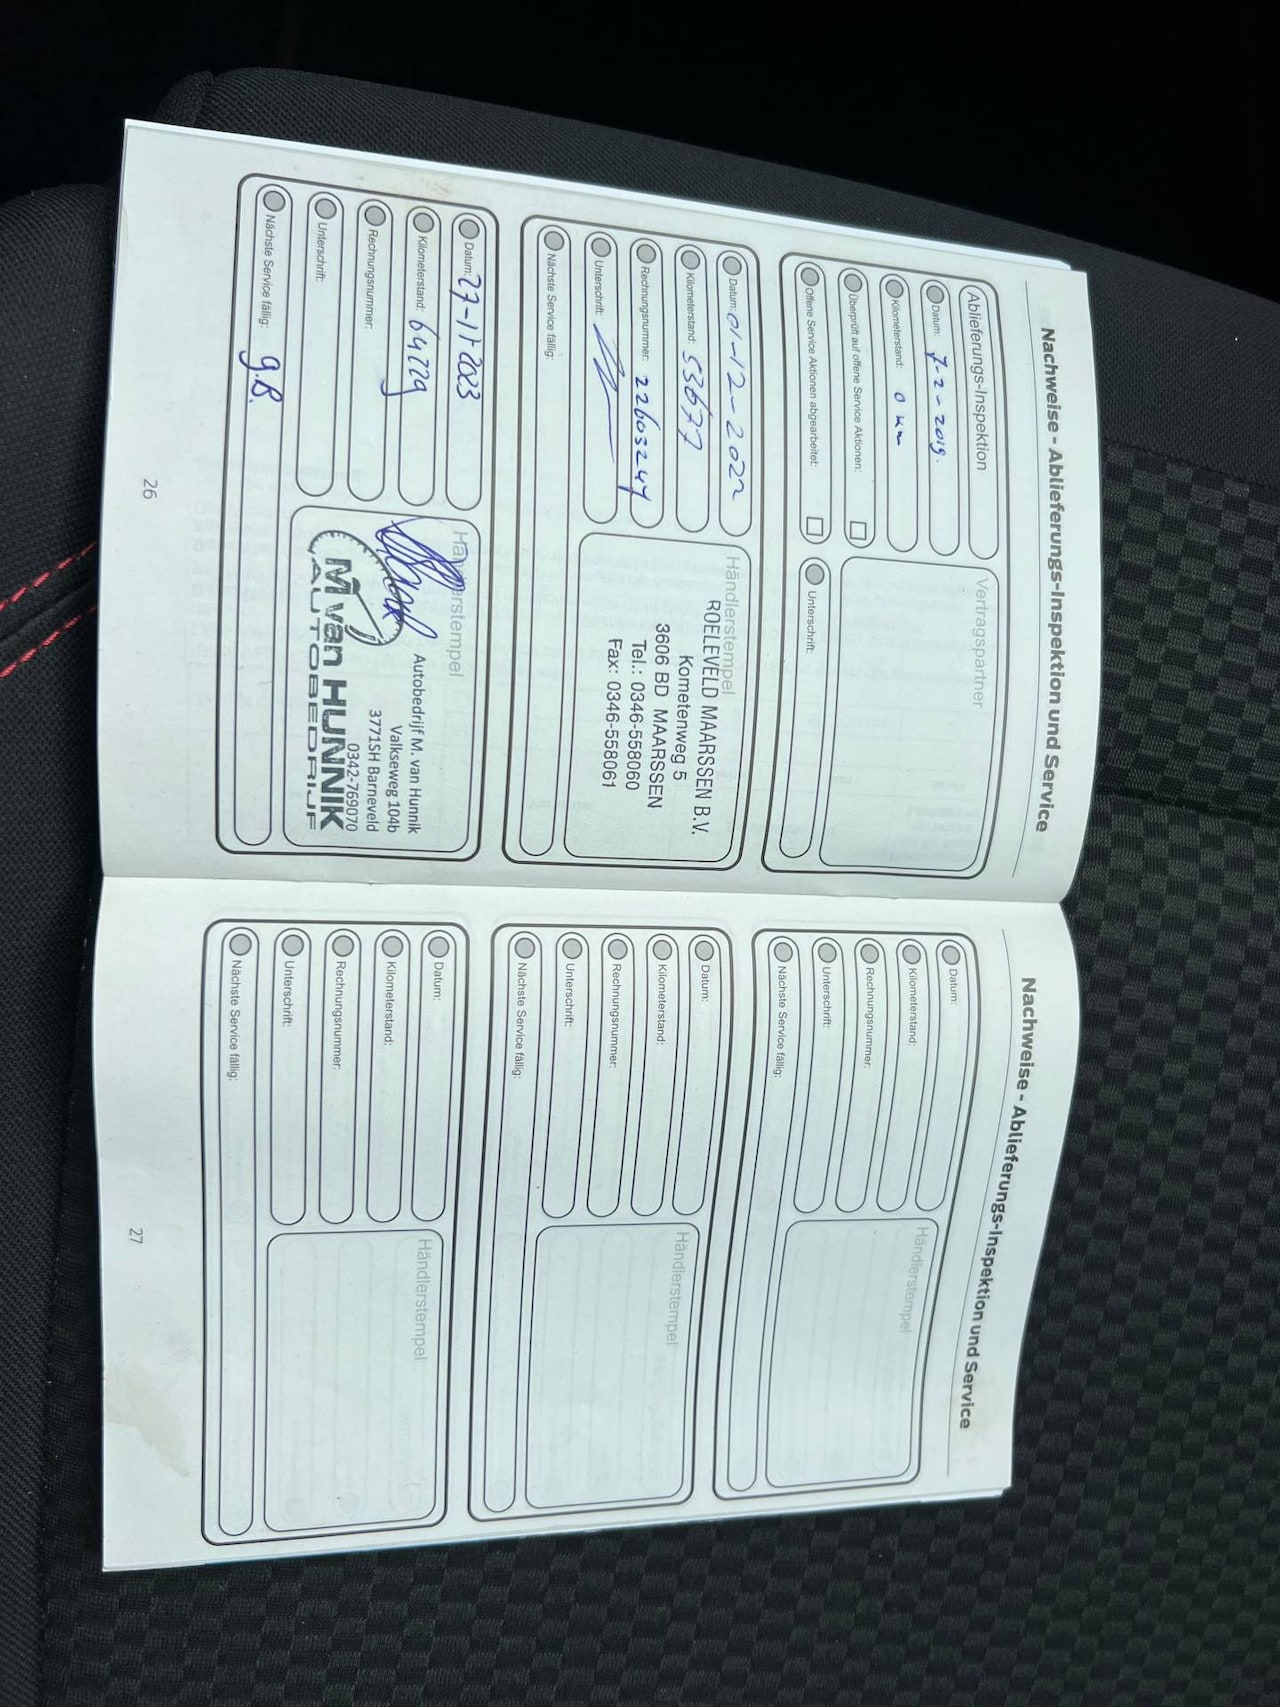 Nachweise - Ablieferungs-Inspektion und Service
Ablieferungs-Inspektion
Datum: 7-2-2019.
Kilometerstand: 0 km
Überprüft auf offene Service Aktionen:
Offene Service Aktionen abgearbeitet:
Vertragspartner
Unterschrift:
Datum: 01-12-2022
Kilometerstand: 53677
Rechnungsnummer: 22603247
Unterschrift:
Nächste Service fällig:
Händlerstempel
ROELEVELD MAARSSEN B.V.
Kometenweg 5
3606 BD MAARSSEN
Tel.: 0346-558060
Fax: 0346-558061
Datum: 27-11-2023
Kilometerstand: 64229
Rechnungsnummer:
Unterschrift:
Nächste Service fällig: g.B.
Händlerstempel
Autobedrijf M. van Hunnik
Valkseweg 104b
3771SH Barneveld
0342-769070
M van HUNNIK
AUTOBEDRIJF
26
Nachweise - Ablieferungs-Inspektion und Service
Datum:
Kilometerstand:
Rechnungsnummer:
Unterschrift:
Nächste Service fällig:
Händlerstempel
Datum:
Kilometerstand:
Rechnungsnummer:
Unterschrift:
Nächste Service fällig:
Händlerstempel
Datum:
Kilometerstand:
Rechnungsnummer:
Unterschrift:
Nächste Service fällig:
Händlerstempel
27